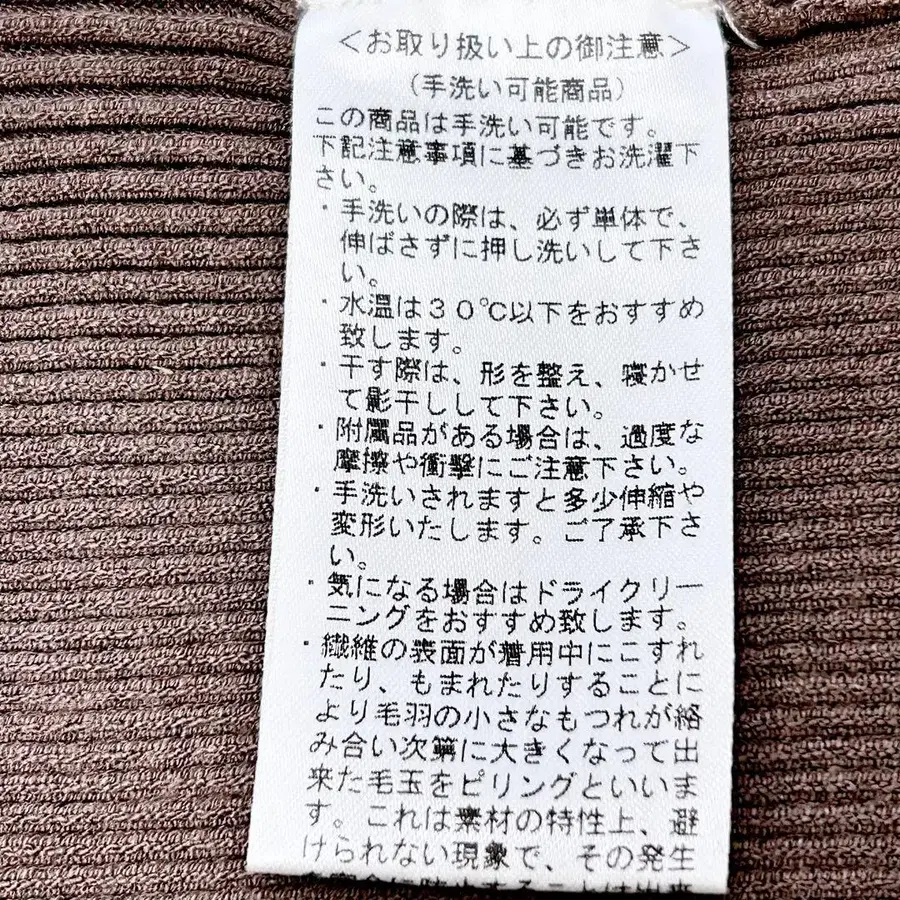 ＜お取り扱い上の御注意＞
（手洗い可能商品）
この商品は手洗い可能です。
下記注意事項に基づきお洗濯下
さい。
・手洗いの際は、必ず単体で、
伸ばさずに押し洗いして下さ
い。
・水温は３０℃以下をおすすめ
致します。
・干す際は、形を整え、寝かせ
て影干しして下さい。
・附属品がある場合は、過度な
摩擦や衝撃にご注意下さい。
・手洗いされますと多少伸縮や
変形いたします。ご了承下さ
い。
・気になる場合はドライクリー
ニングをおすすめ致します。
・繊維の表面が着用中にこすれ
たり、もまれたりすることに
より毛羽の小さなもつれが絡
み合い次第に大きくなって出
来た毛玉をピリングといいま
す。これは素材の特性上、避
けられない現象で、その発生